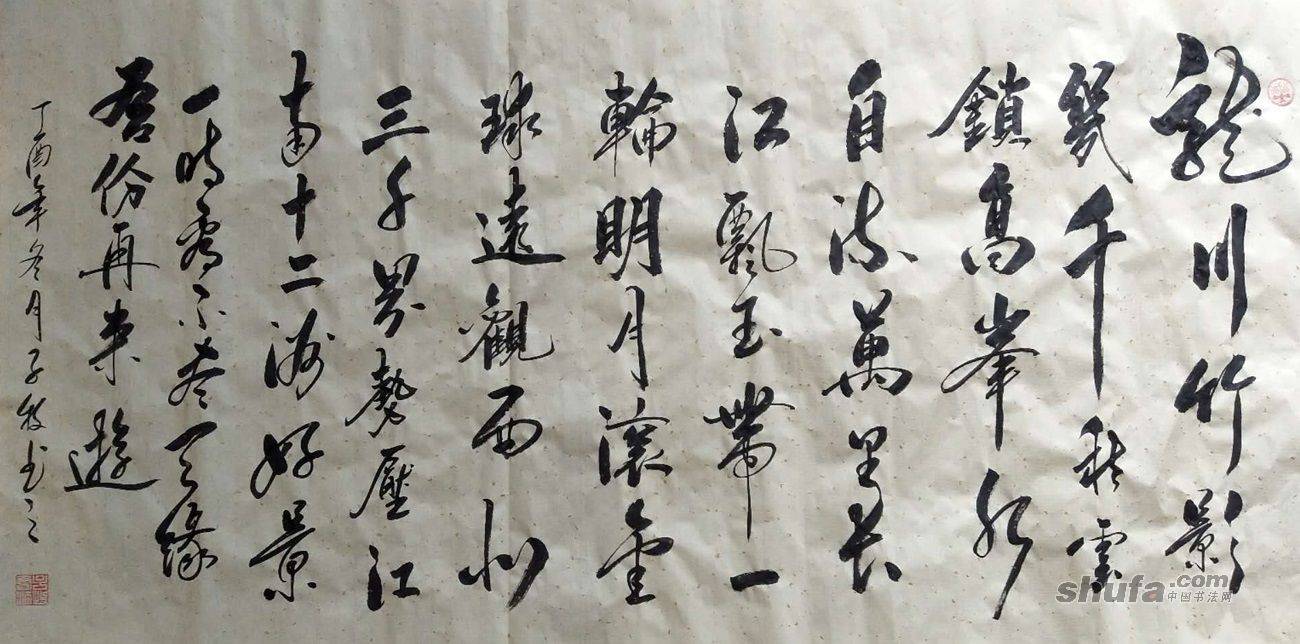 龍川竹影
幾千秋雲
鎖高峯水
自流萬里長
江飄玉帶一
輪明月滚金
球遠觀西北
三千界勢壓江
南十二洲好景
一時看不尽天緣
份再来遊
丁酉年冬月子牧书
shufa.com
中国书法网